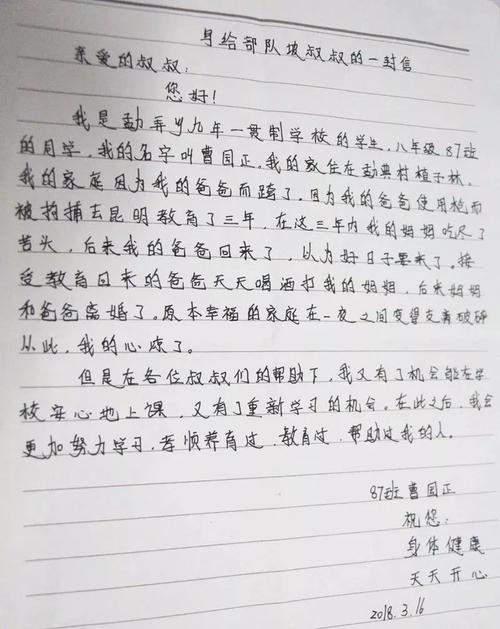 写给部队坡叔叔的一封信
亲爱的叔叔:
您好!
我是勐弄乡九年一贯制学校的学生,八年级87班
的同学,我的名字叫曹国正,我的家住在勐典村植子林,
我的家庭因为我的爸爸而跨了。因为我的爸爸使用枪而
被拘捕去昆明教育了三年,在这三年内我的妈妈吃尽了
苦头,后来我的爸爸回来了,以为好日子要来了。接
受教育回来的爸爸天天喝酒打我的妈妈,后来妈妈
和爸爸离婚了。原本幸福的家庭在一夜之间变得支离破碎
从此,我的心凉了。
但是在各位叔叔们的帮助下,我又有了机会能在学
校安心地上课,又有了重新学习的机会。在此之后,我会
更加努力学习,孝顺养育过,教育过,帮助过我的人。
87班曹国正
祝您:
身体健康
天天开心
2018.3.16